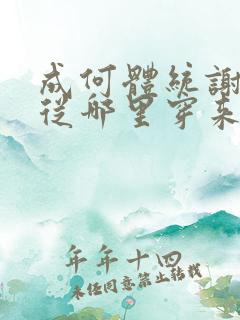 成何體統謝
從哪里穿来
年年十四
未经同意禁止转载